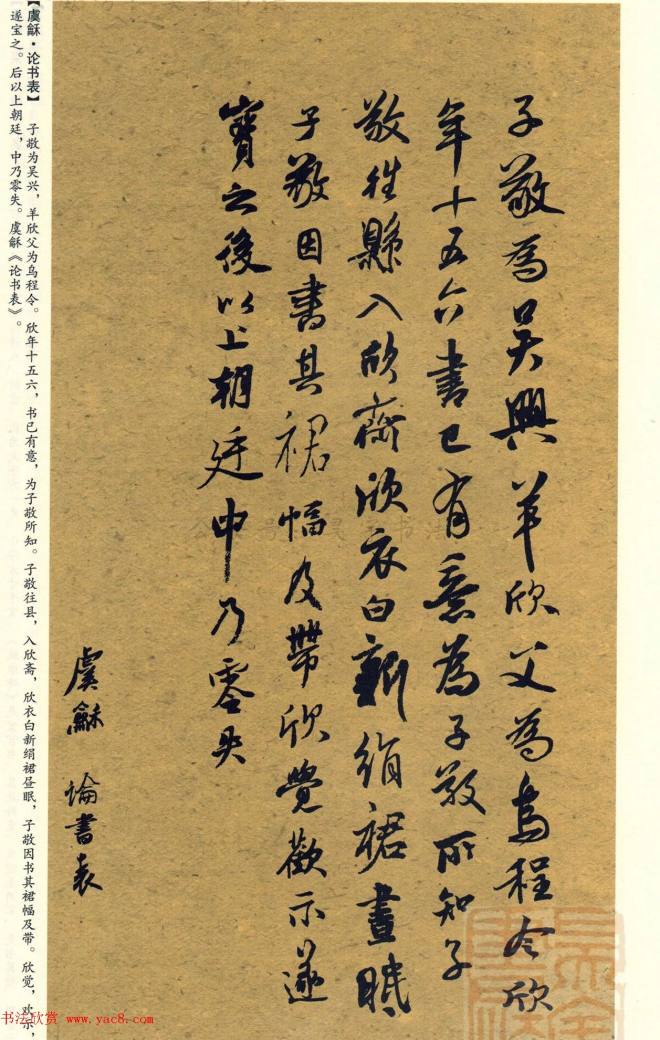 子敬為吳興羊欣父為烏程令欣
年十五六書已有意為子敬所知子
敬往縣入欣齋欣衣白新絹裙晝眠
子敬因書其裙幅及帶欣覺歡示遂
寶之後以上朝廷中乃零失
虞龢 論書表
【虞龢·论书表】 子敬为吴兴，羊欣父为乌程令。欣年十五六，书已有意，为子敬所知。子敬往县，入欣斋，欣衣白新绢裙昼眠，子敬因书其裙幅及带。欣觉，欢乐，
遂宝之。后以上朝廷，中乃零失。虞龢《论书表》。
书法欣赏 www.yac8.com